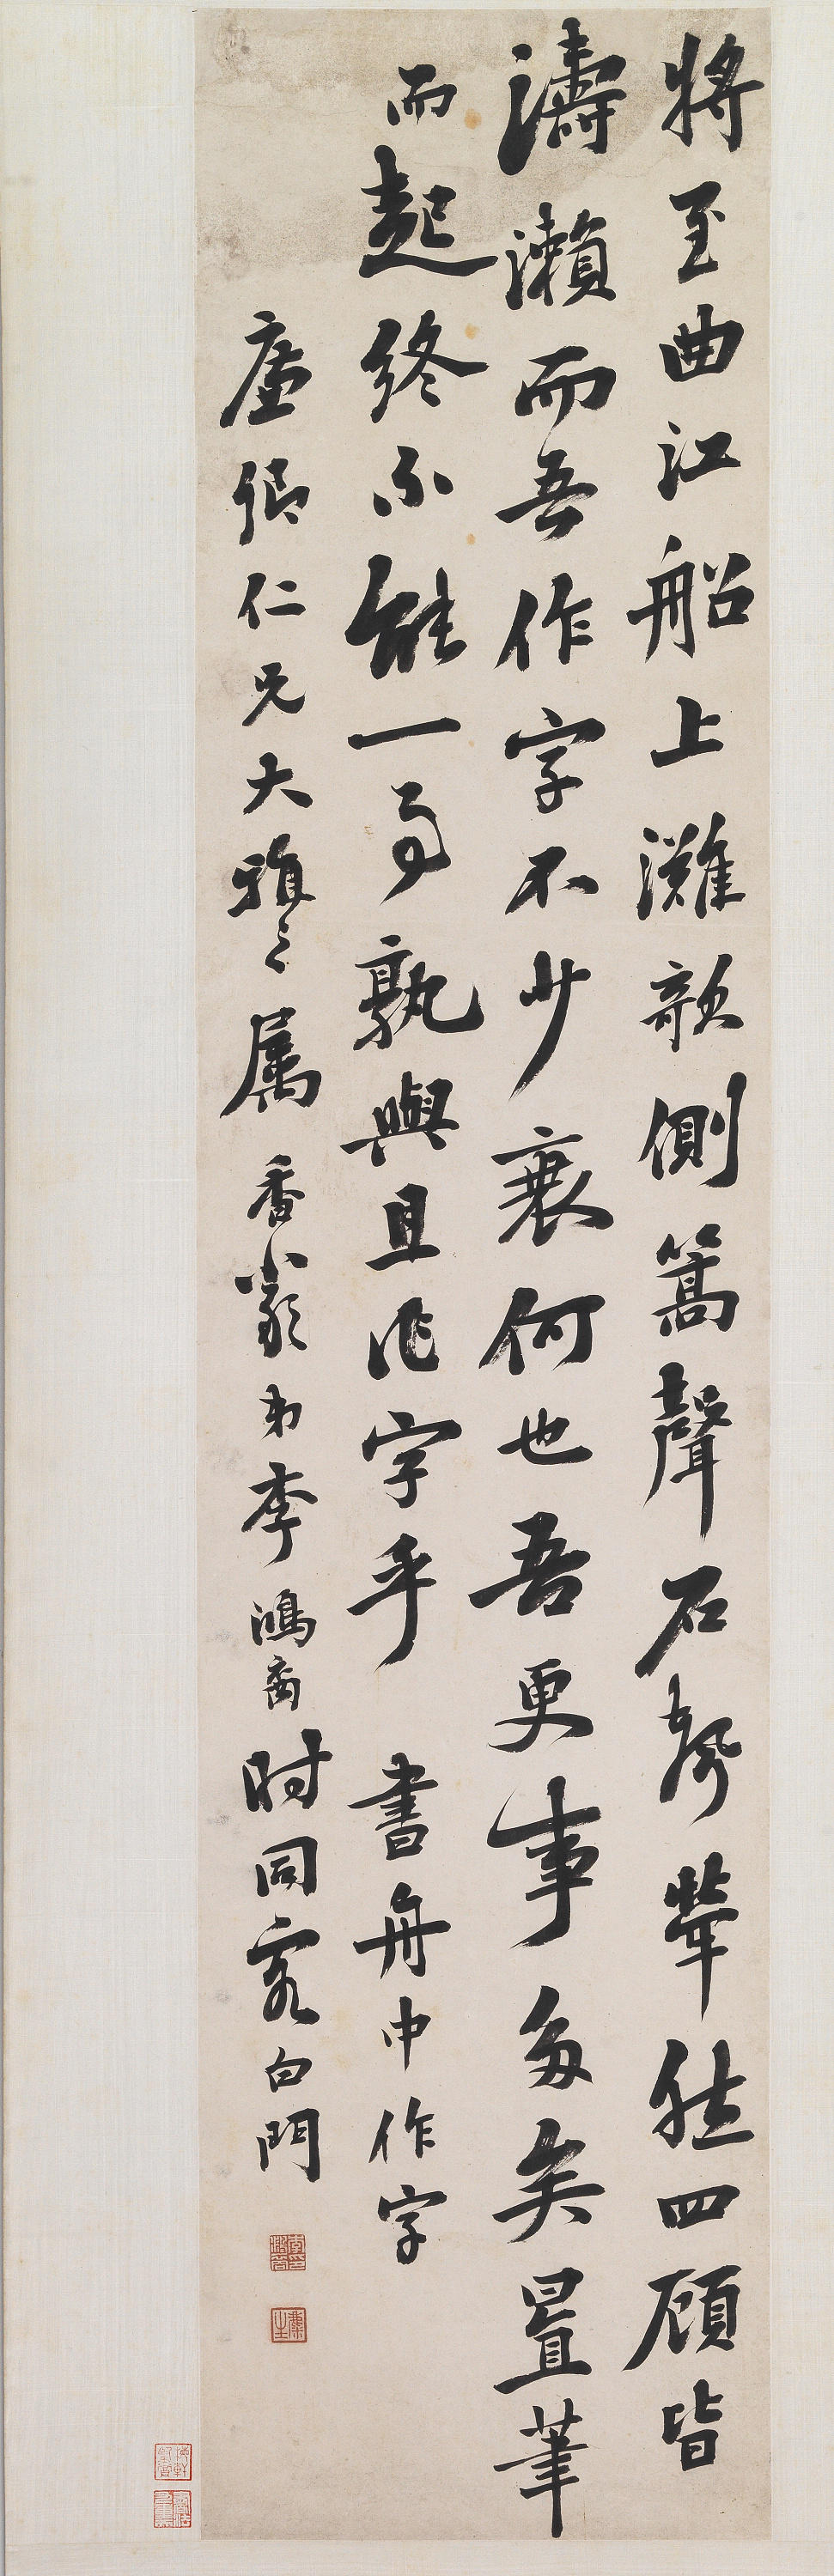 將至曲江船上灘欹側篙聲石聲犖然四顧皆
濤瀨而吾作字不少衰何也吾更事多矣置筆
而起終不能一事孰與且作字乎 書舟中作字
廉卿仁兄大雅之属 香嚴弟李鴻裔时同客白門